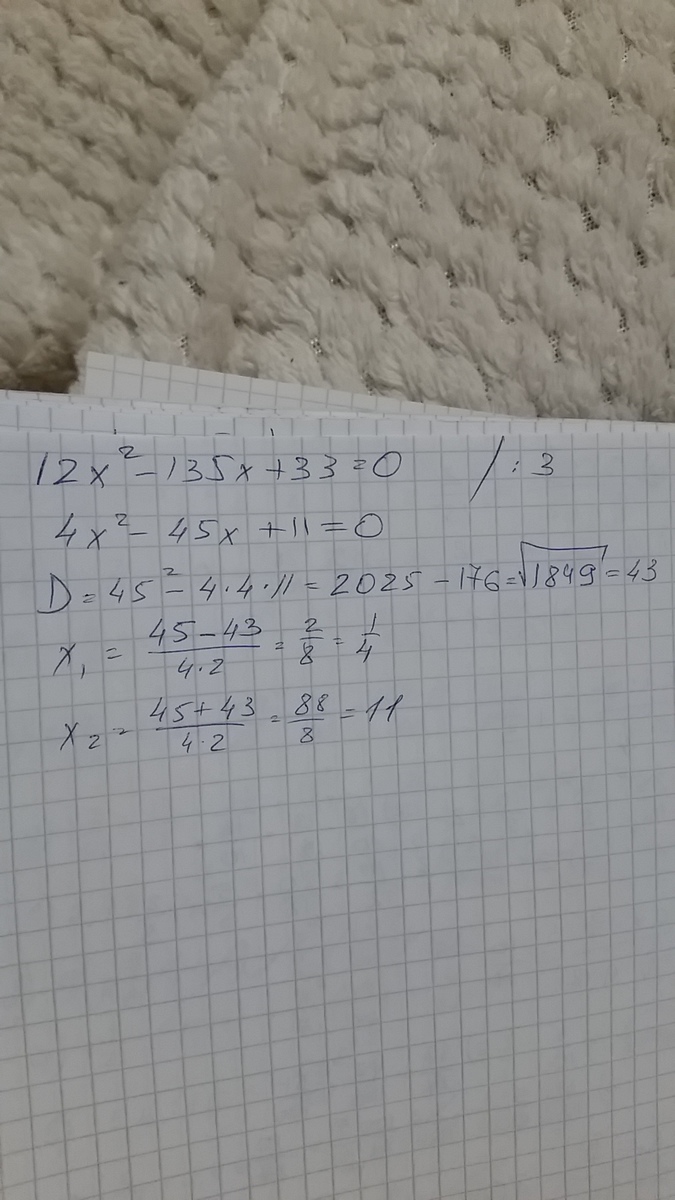 12x² - 135x + 33 = 0 / : 3
4x² - 45x + 11 = 0
D = 45² - 4 · 4 · 11 = 2025 - 176 = √1849 = 43
x₁ = (45 - 43)/(4 · 2) = 2/8 = 1/4
x₂ = (45 + 43)/(4 · 2) = 88/8 = 11